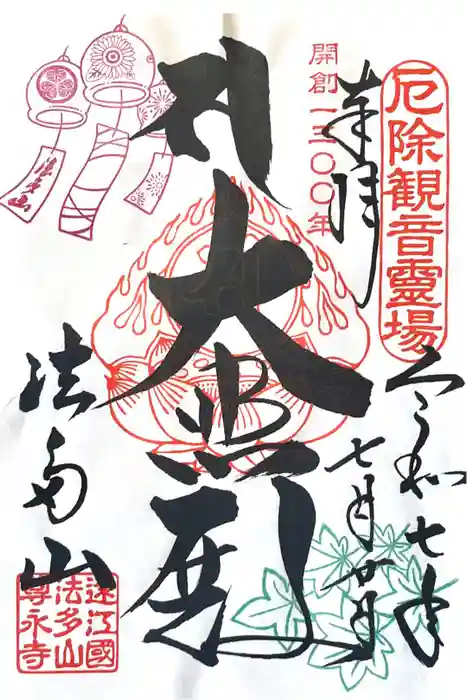 厄除観音靈場
令和七年
奉拝
七月廿日
開創一三〇〇年
大悲殿
法多山
法多山
遠江國
法多山
尊永寺